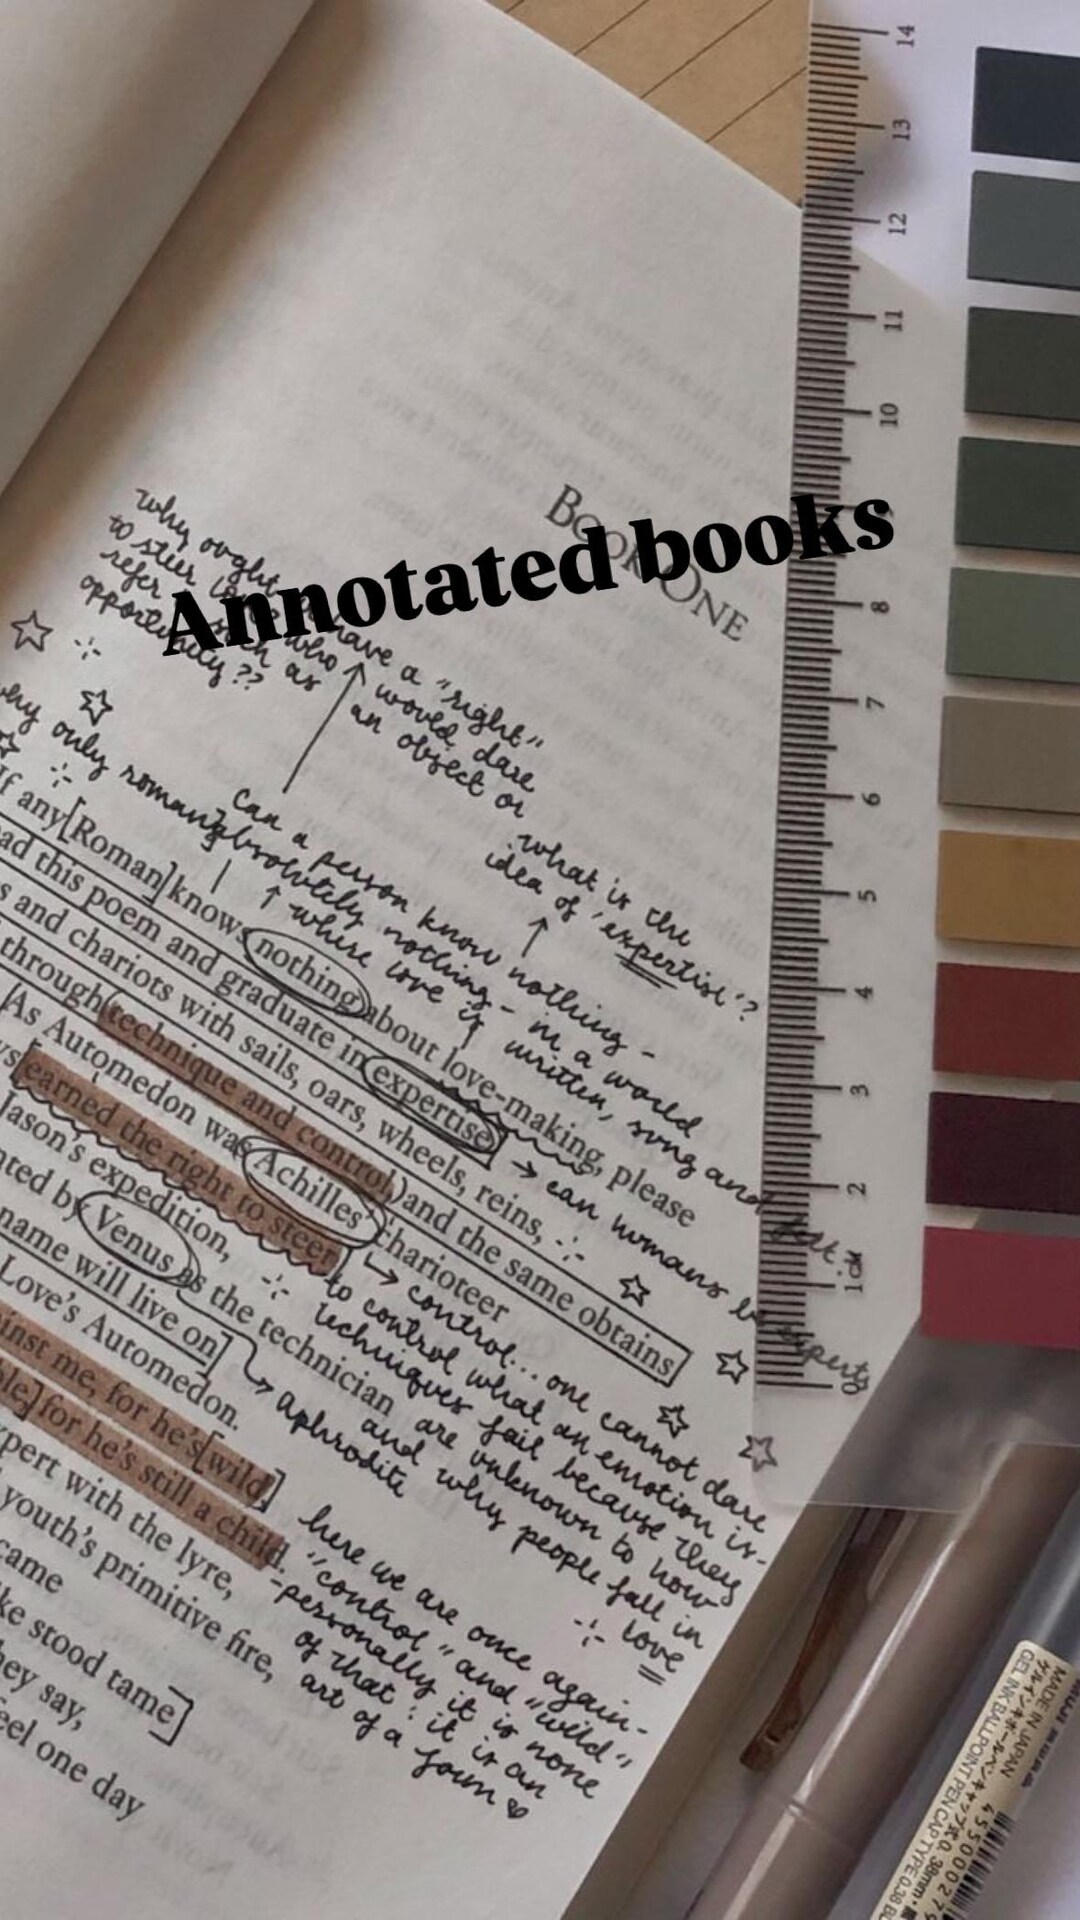 Annotated books
BOOK ONE
why ought
to steer
refer
opportunity??
have a "right"
who would dare
such as an object or
very only romans
can a person know nothing -
absolutely nothing - in a world
where love is written, sung and
what is the
idea of 'expertise'?
If any [Roman] knows nothing about love-making, please
ad this poem and graduate in expertise
s and chariots with sails, oars, wheels, reins,
through (technique and control,) and the same obtains
As Automedon was Achilles' charioteer
earned the right to steer
Jason's expedition,
nted by Venus as the technician
name will live on]
Love's Automedon.
inst me, for he's [wild]
ble,] for he's still a child.
xpert with the lyre,
youth's primitive fire,
came
ke stood tame]
hey say,
eel one day
→ can humans be
→ control... one cannot dare
to control what an emotion is -
techniques fail because they
are unknown to how
and why people fall in
love
aphrodite
here we are once again -
"control" and "wild"
- personally it is none
of that: it is an
art of a form ♥
14
13
12
11
10
8
7
6
5
4
3
2
1cm
0
MADE IN JAPAN
ゲルインキボールペンキャップ式0.38mm
GEL INK BALLPOINT PEN CAP TYPE 0.38 BL